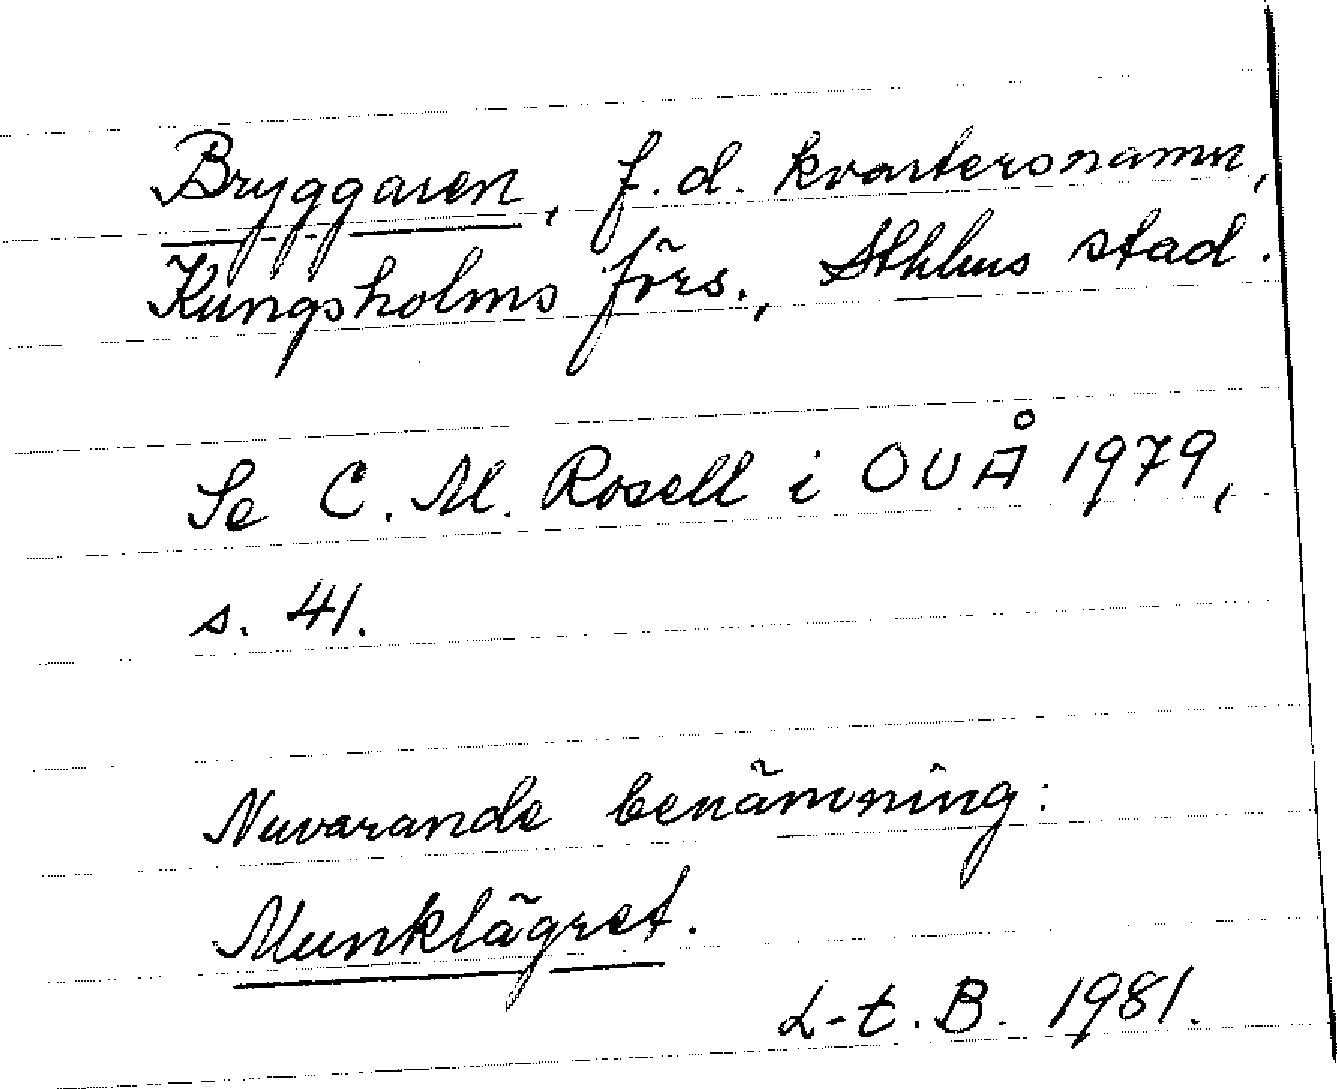 Bryggaren, f.d. kvartersnamn,
Kungsholms förs., Sthlms stad.
Se C. M. Rosell i OUÅ 1979,
s. 41.
Nuvarande benämning:
Munklägret.
L-t. B. 1981.